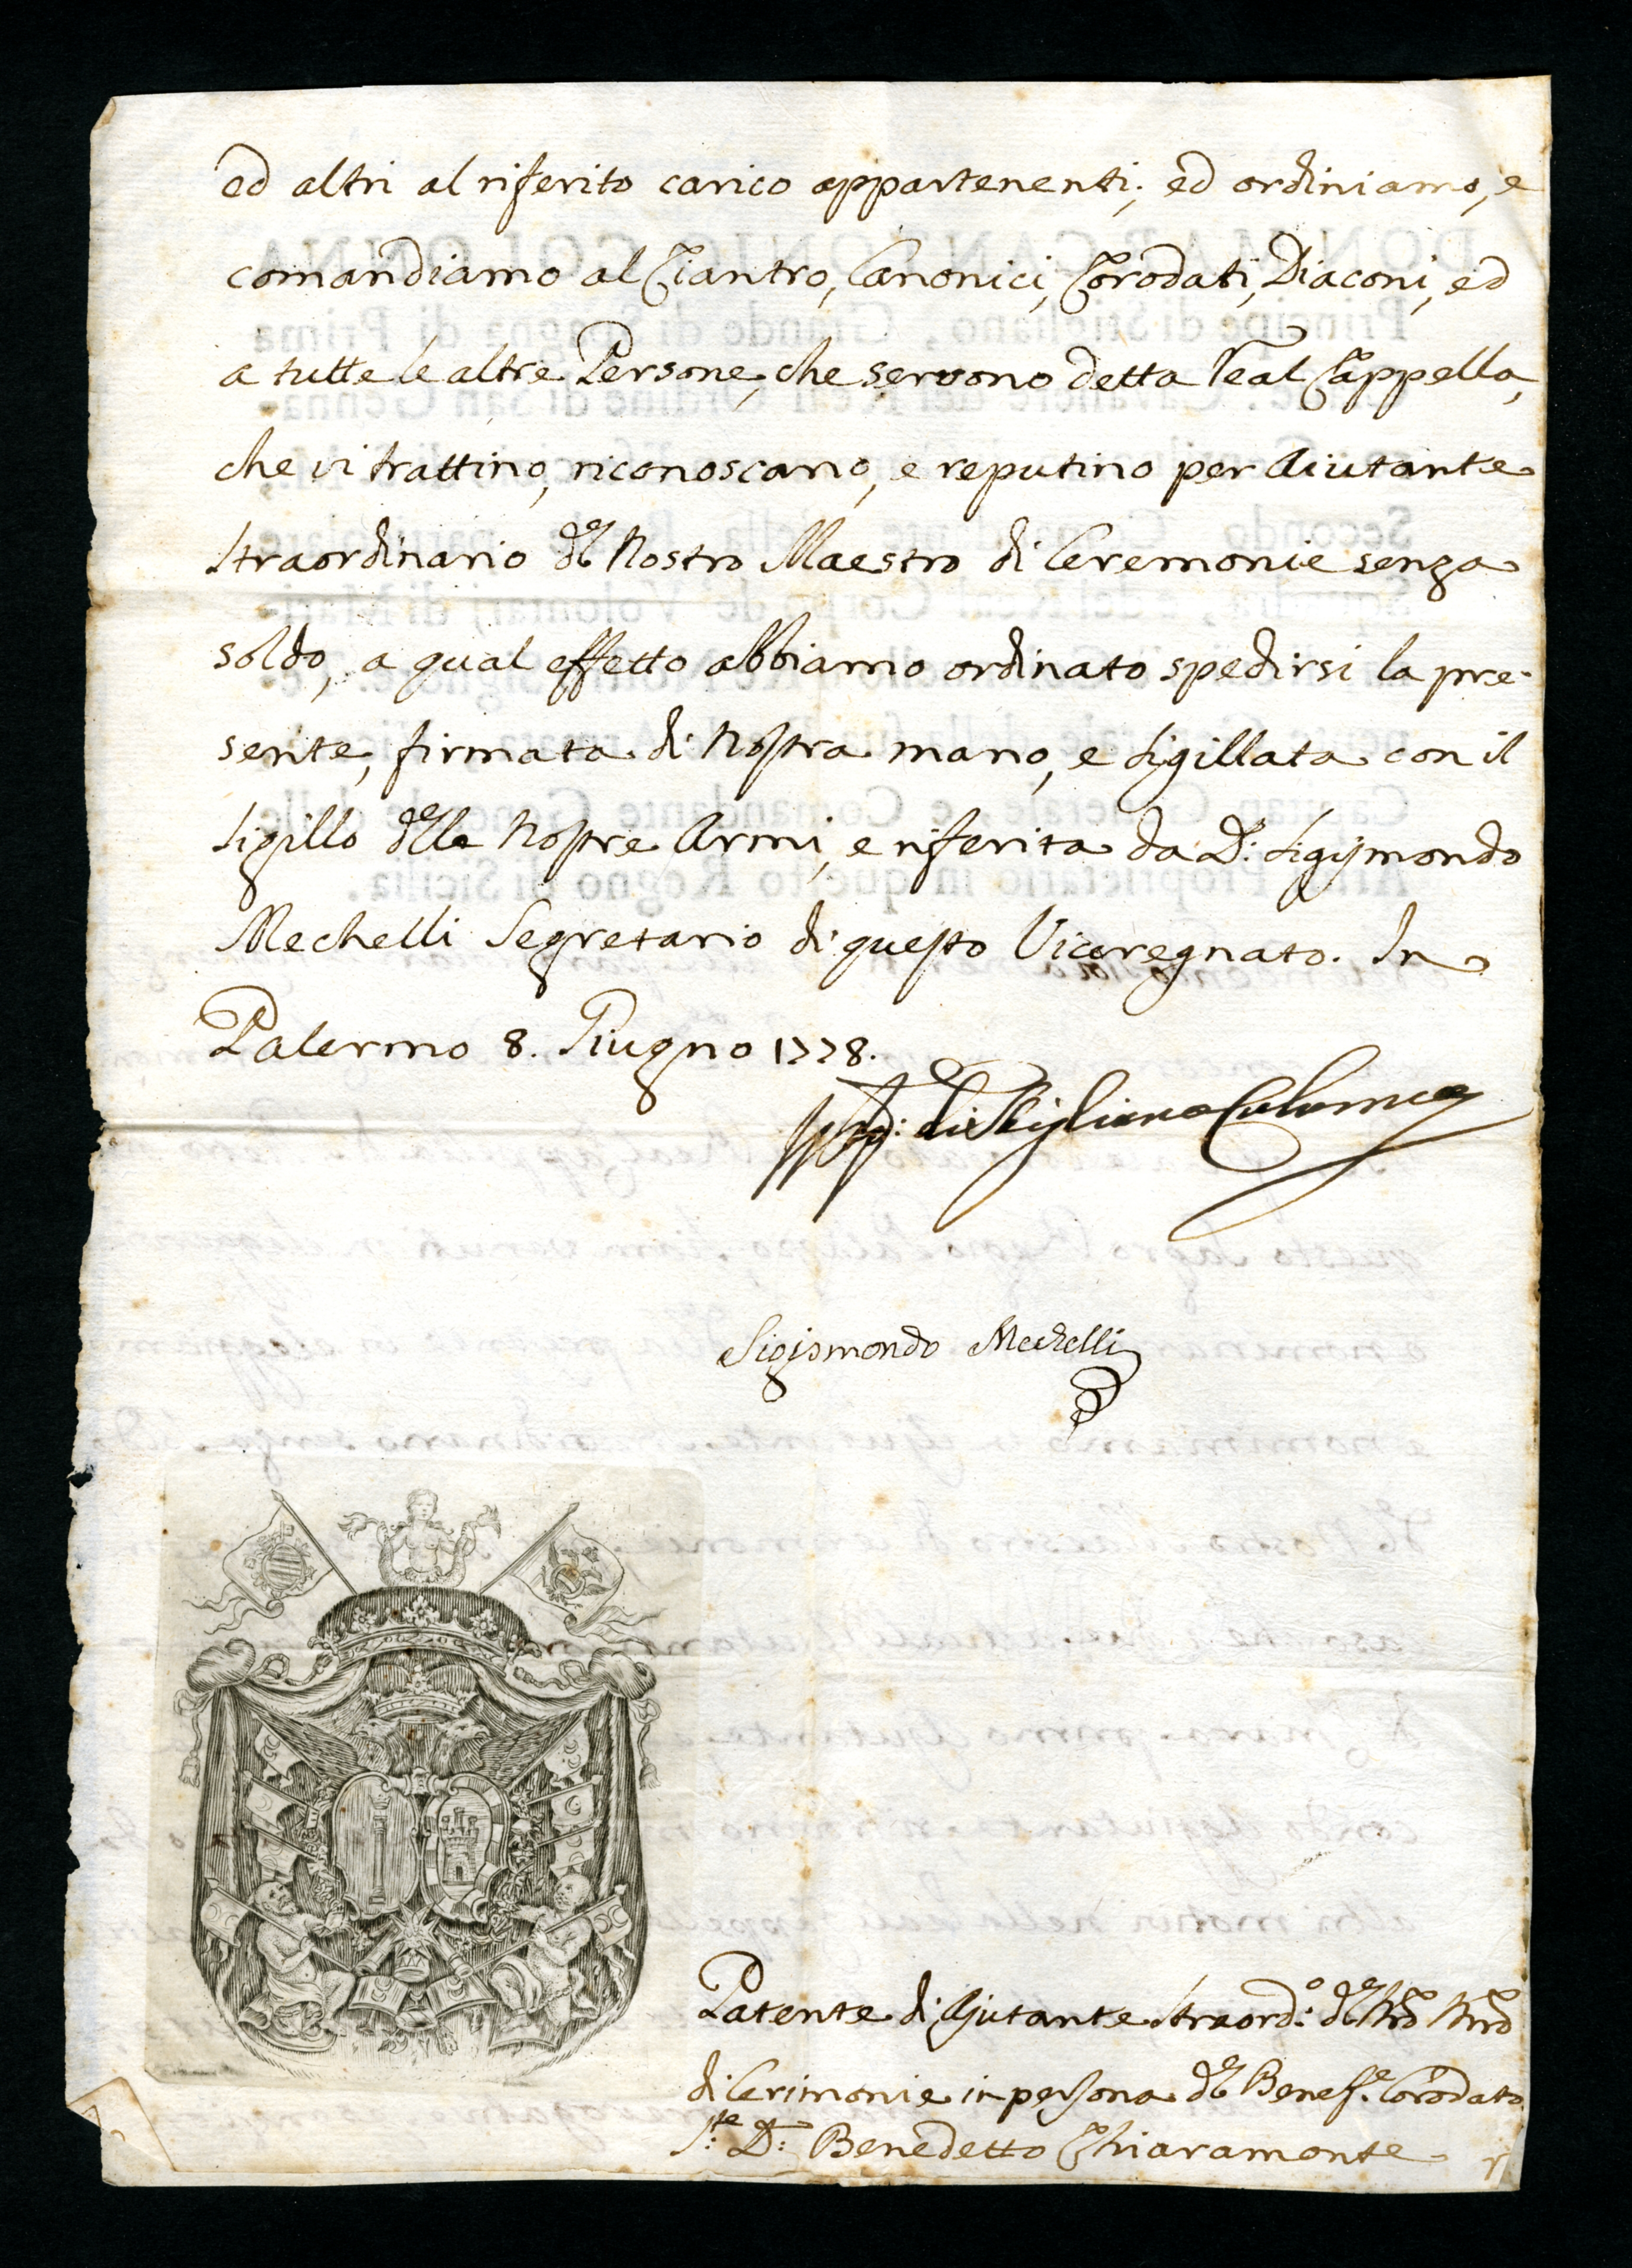 ed altri al riferito carico appartenenti; ed ordiniamo, e
comandiamo al Ciantro, Canonici, Corodati, Diaconi, ed
a tutte le altre Persone, che servono detta Real Cappella,
che vi trattino, riconoscano, e reputino per Aiutante
straordinario del Nostro Maestro di Ceremonie senza
soldo, a qual effetto abbiamo ordinato spedirsi la pre-
sente, firmata di Nostra mano, e sigillata con il
sigillo delle Nostre Armi, e riferita da D: Sigismondo
Mechelli Segretario di questo Viceregnato. In
Palermo 8. Giugno 1778.
di Stigliano Colonna
Sigismondo Mechelli
Patente di Ajutante straord:o del
di Cerimonie in persona del Benef:e Corodato
D: Benedetto Chiaramonte